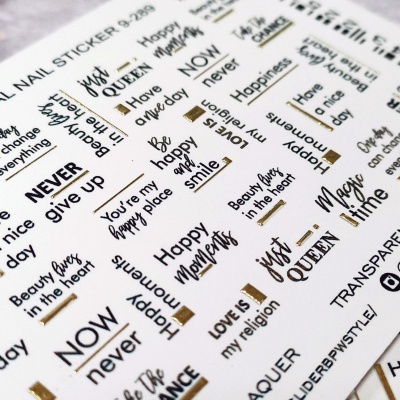 AL NAIL STICKER 9-289
Happy
Moments
Take The
CHANCE
just
QUEEN
NOW
never
Beauty lives
in the heart
Beauty lives
in the heart
Have
a nice day
Happiness
change
everything
LOVE IS
my religion
Have
a nice
day
Happy
moments
Be
happy
and
smile
NEVER
give up
You're my
happy place
Beauty lives
in the heart
One day
can change
Magic
time
nice
day
Happy
Moments
just
QUEEN
Beauty lives
in the heart
Happy
moments
TRANSPARE
NOW
never
LOVE IS
my religion
day
Be The
CHANCE
AQUER
SLIDERBPWSTYLE/